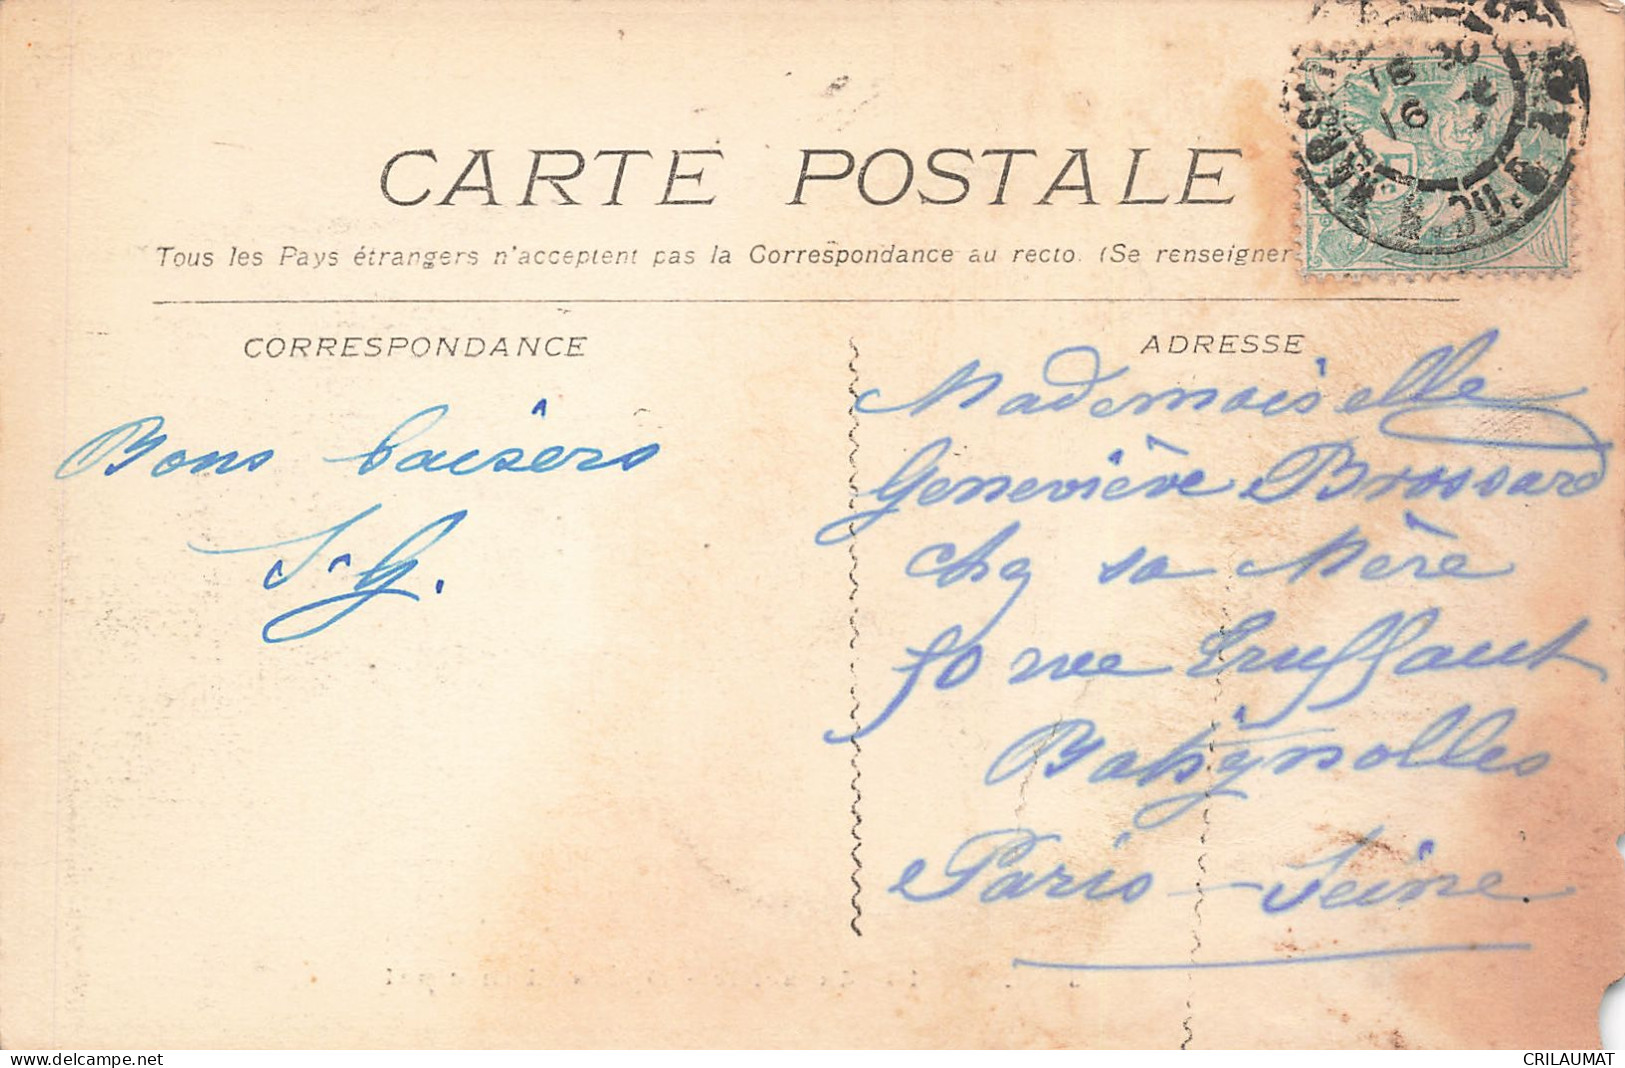 CARTE POSTALE
Tous les Pays étrangers n'acceptent pas la Correspondance au recto. (Se renseigner
CORRESPONDANCE
ADRESSE
Bons baisers
J. G.
Mademoiselle
Geneviève Brossard
chez sa Mère
70 rue Truffaut
Batignolles
Paris - Seine
MARSEILLE
delcampe.net
CRILAUMAT